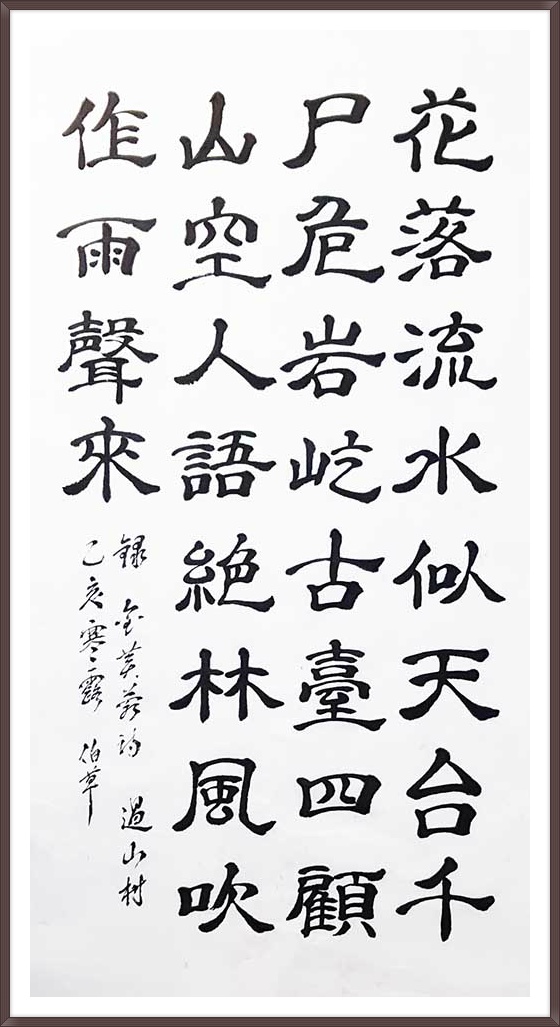 花落流水似天台千
尸危岩屹古臺四顧
山空人語絶林風吹
作雨聲來
録金芙蓉詩 過山村
乙亥寒露 伯草